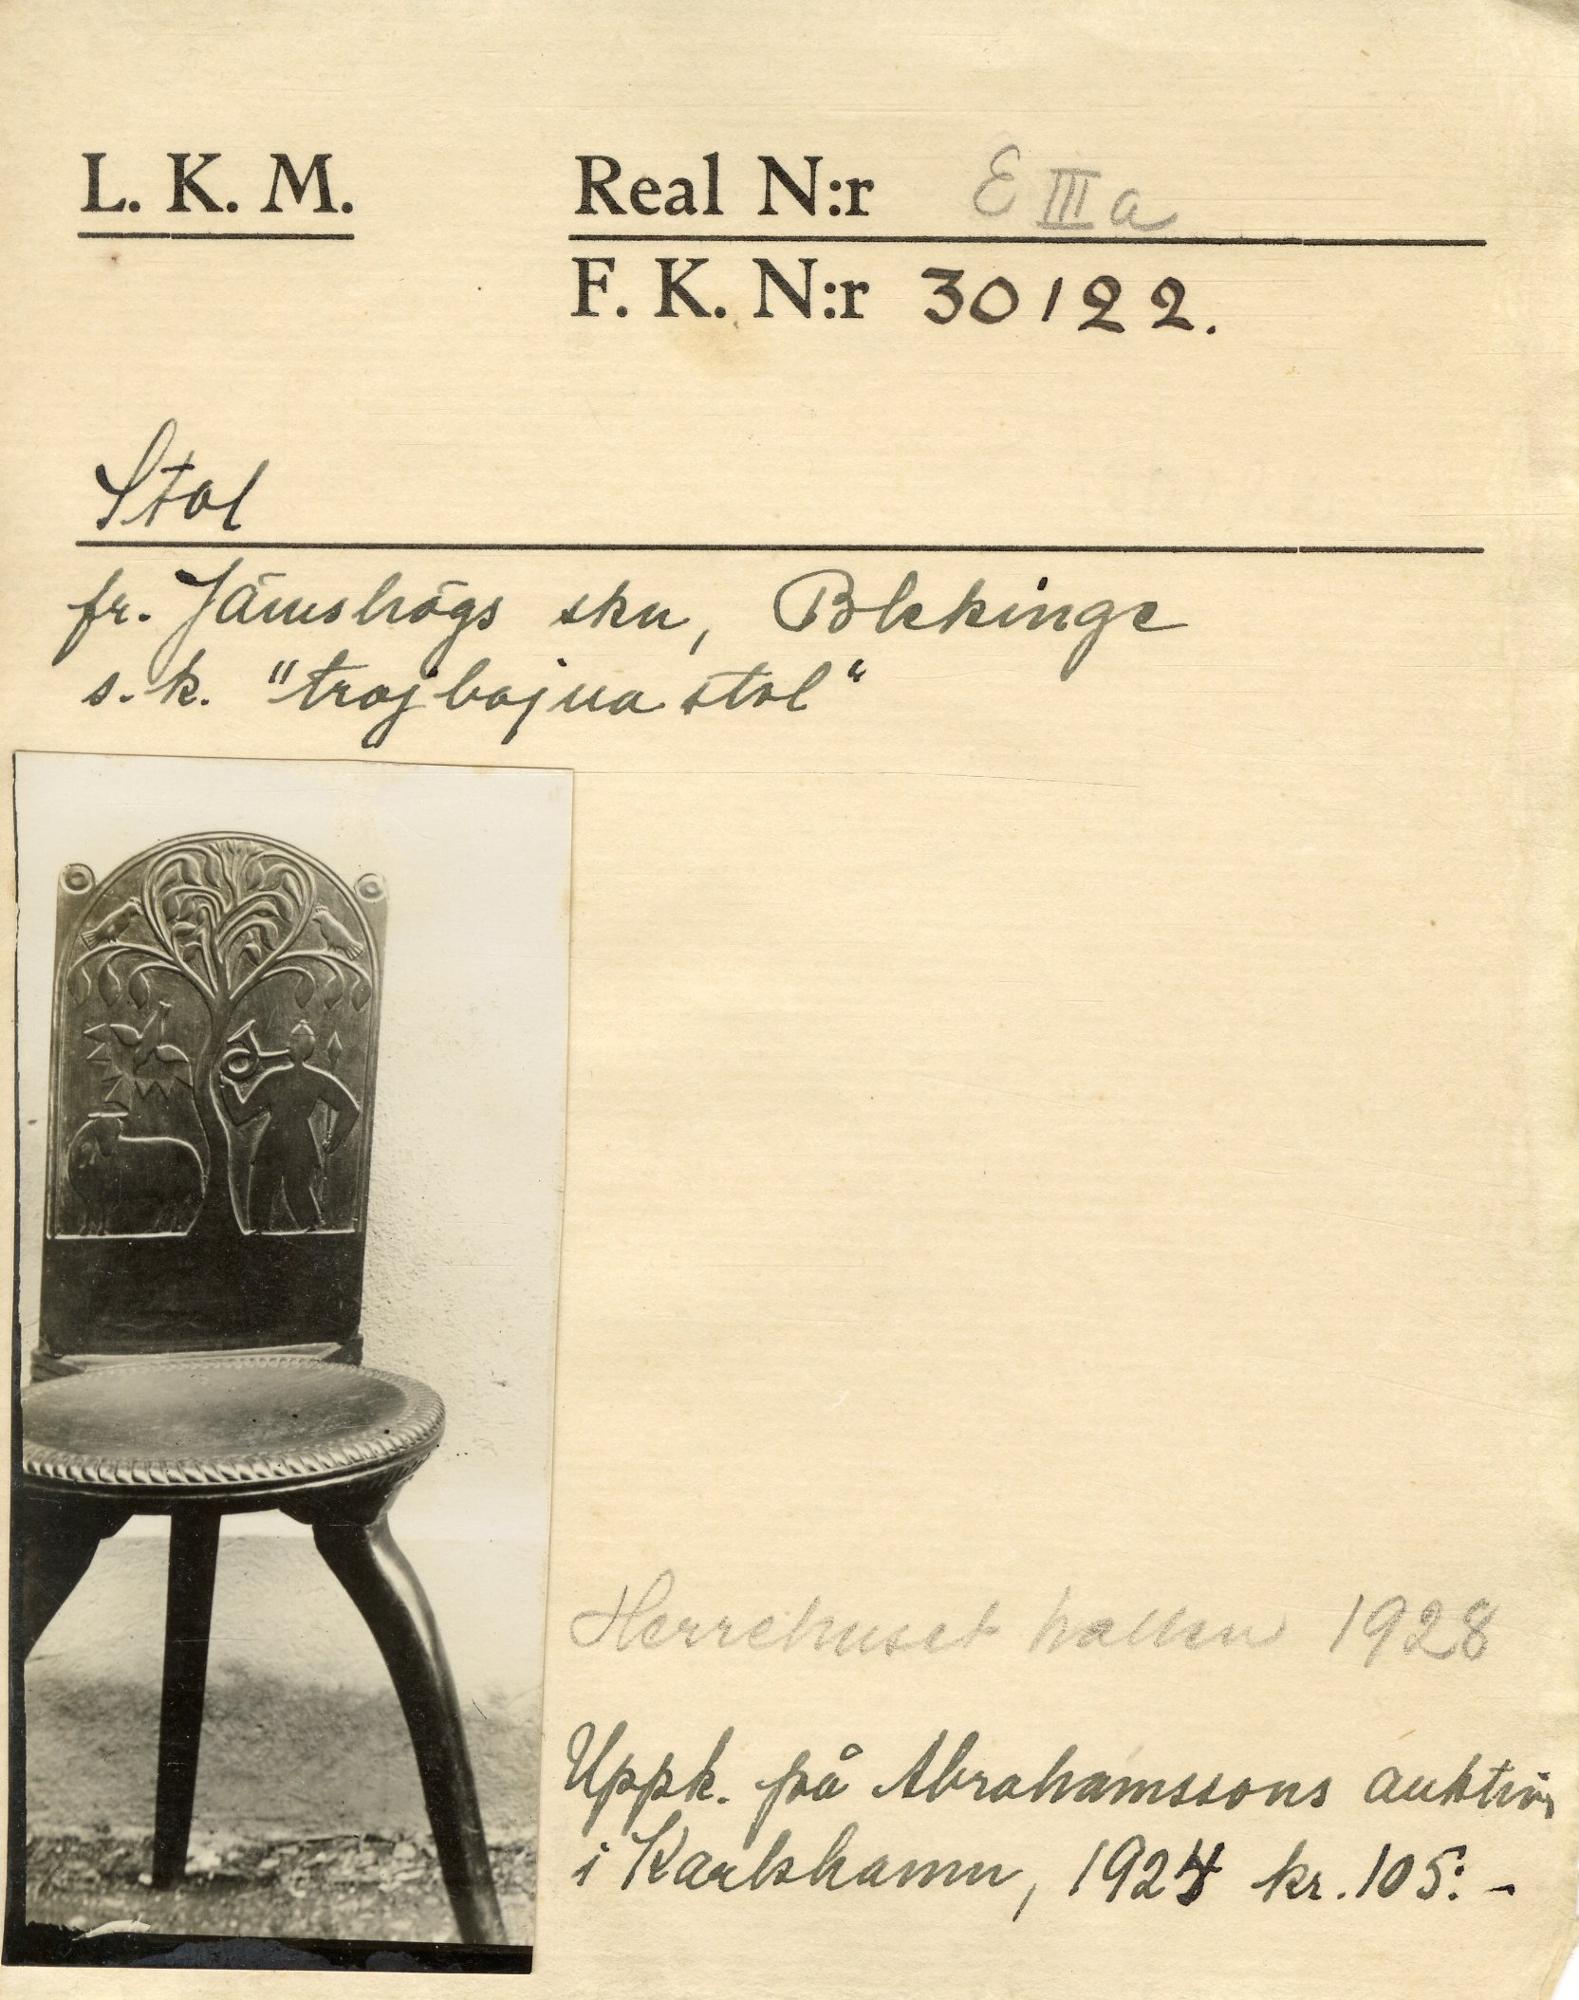 L. K. M.
Real N:r E III a
F. K. N:r 30122.
Stol
fr. Jämshögs skn, Blekinge
s.k. "trojbojna stol"
Herrehuset hallen 1928
Uppk. på Abrahamssons auktion
i Karlshamn, kr. 105:-